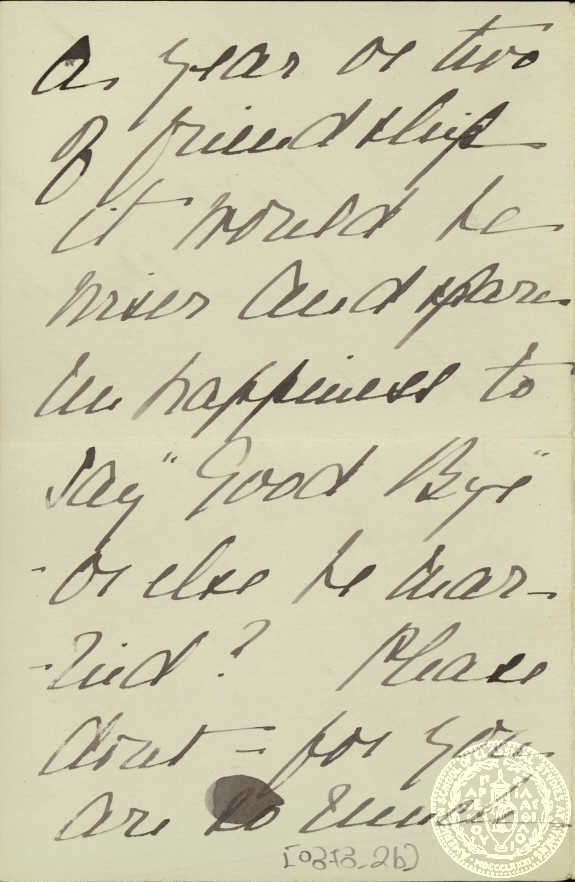 a year or two
of friendship
it would be
wiser and spare
unhappiness to
say "Good Bye"
- or else be mar-
-ried? Please
dont = for you
are so much
[0373-2b]